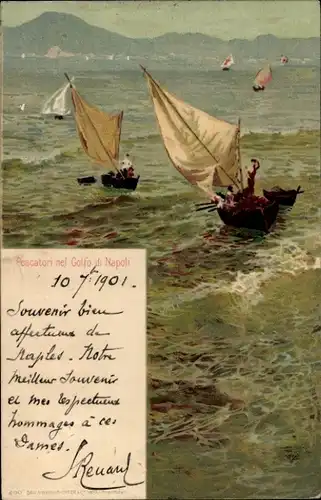 Pescatori nel Golfo di Napoli
10 7bre 1901.
Souvenir bien
affectueux de
Naples - Notre
meilleur Souvenir
et mes respectueux
hommages à ces
Dames.
J Renard